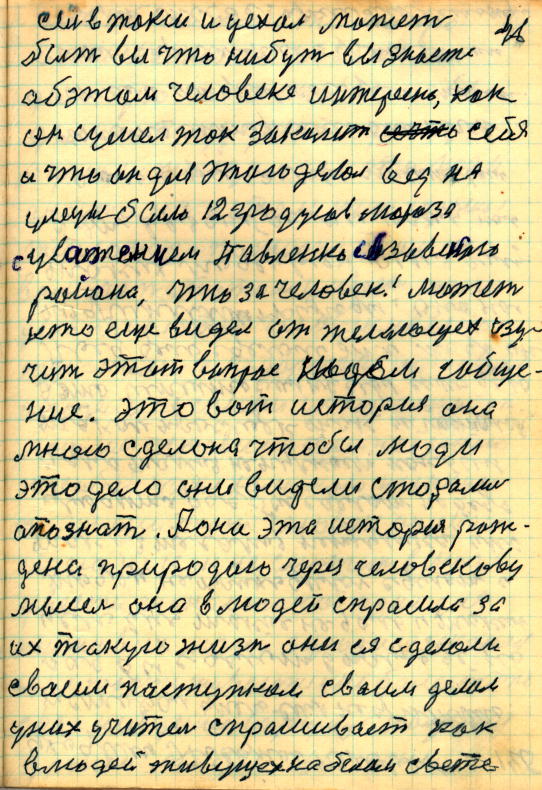 сел в токси и уехал может
быт вы что нибут вы знаете
обэтом человеке интересно, как
он сумел ток закалит себя
и что он для этого делол вед на
улеце было 12 градусов мороза
с уважением Павленко Азовского
района, что за человек! может
кто еще видел от желоющех изу-
чит этот вапрос
ние. это вот история она
много сделона чтобы люди
это дело они видели старалис
опознат. Аона эта история рож-
дена природаю через человекову
мысел она в людей спрасила за
их такую жизн они ея сделоли
сваим паступком сваим делом
у них учител спрашивает как
в людей живущех на белом свете